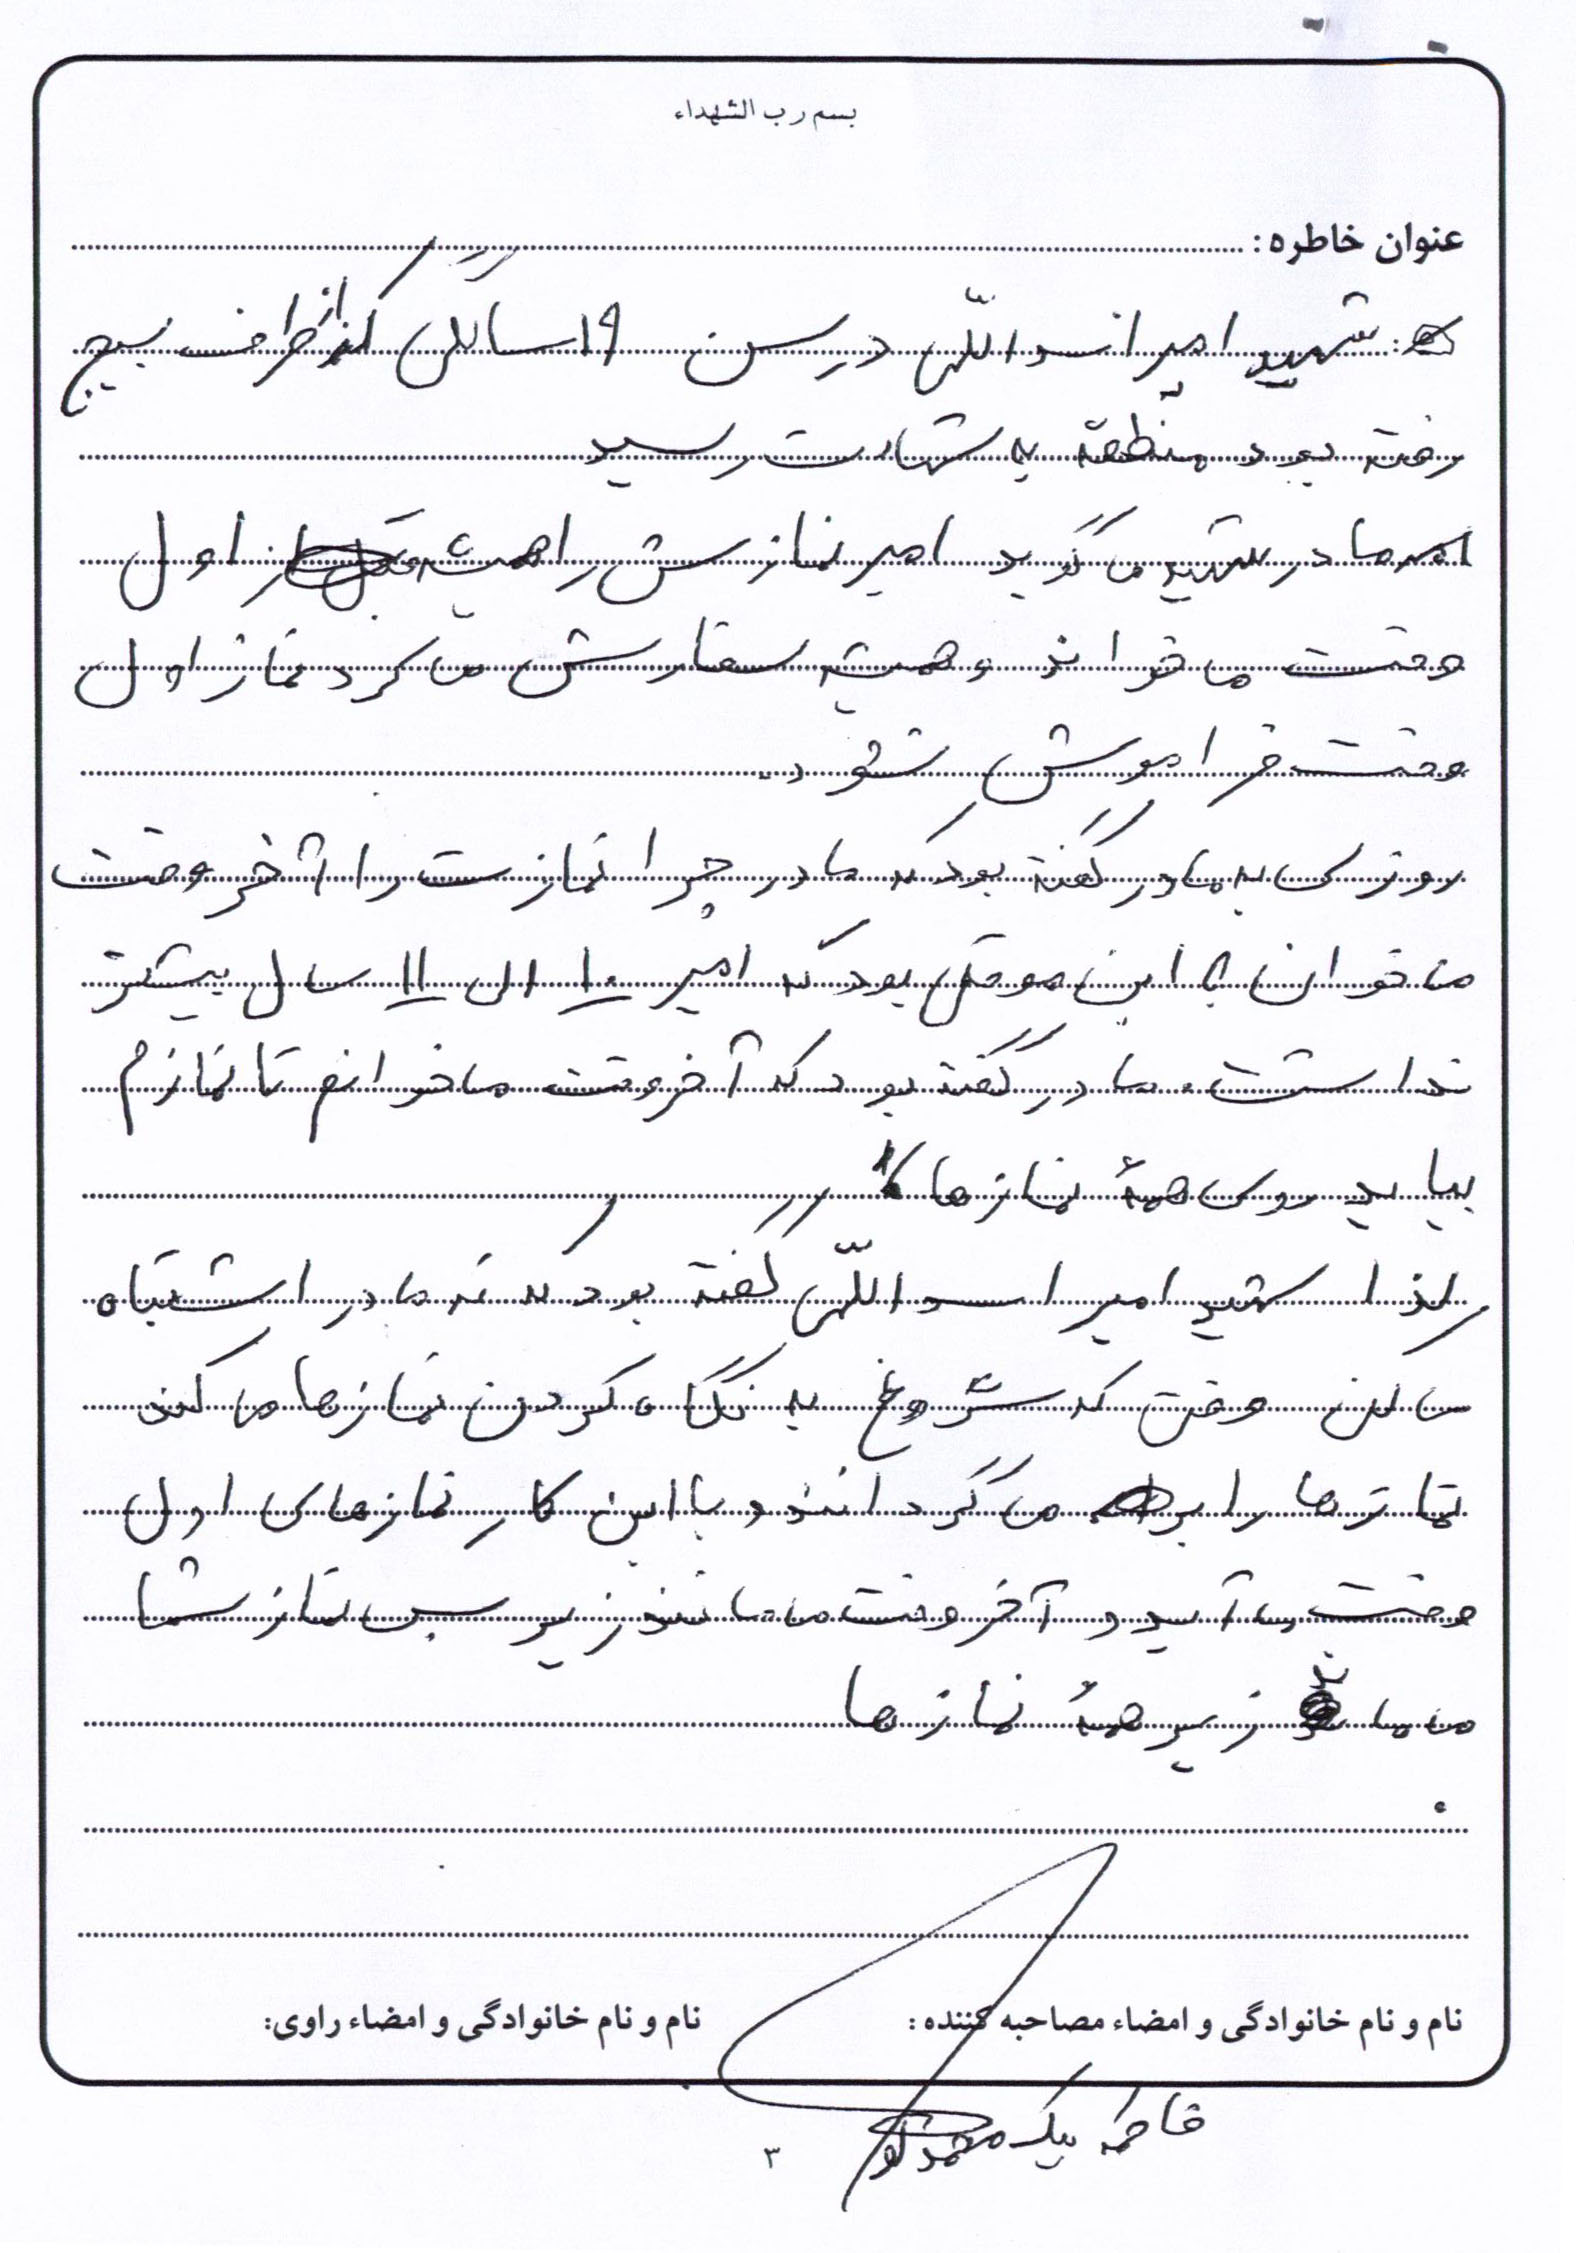 بسم رب الشهداء
عنوان خاطره:
شهید امیر اسداللّهی در سن ۱۹ سالگی که از طرف بسیج
رفته بود منطقه به شهادت رسید
مادر شهید می گوید امیر نمازش را همیشه اول
وقت می خواند و همیشه سفارش می کرد نماز اول
وقت فراموش نشود.
روزی به مادر گفته بود که مادر چرا نمازت را آخر وقت
می خوانی این موقعی بود که امیر ۱۰ الی ۱۱ سال بیشتر
نداشت. مادر گفته بود که آخر وقت می خوانم تا نمازم
بیاید روی همهٔ نمازها
لذا شهید امیر اسداللّهی گفته بود که نه مادر اشتباه
می کنی وقتی که شروع به نگاه کردن نمازها می کند
نمازها را بر می گرداند و با این کار نمازهای اول
وقت می آید رو آخر وقت می ماند زیر پس نماز شما
می ماند زیر همهٔ نمازها
.
نام و نام خانوادگی و امضاء مصاحبه کننده:
نام و نام خانوادگی و امضاء راوی:
فاطمه بیک محمدلو
۳